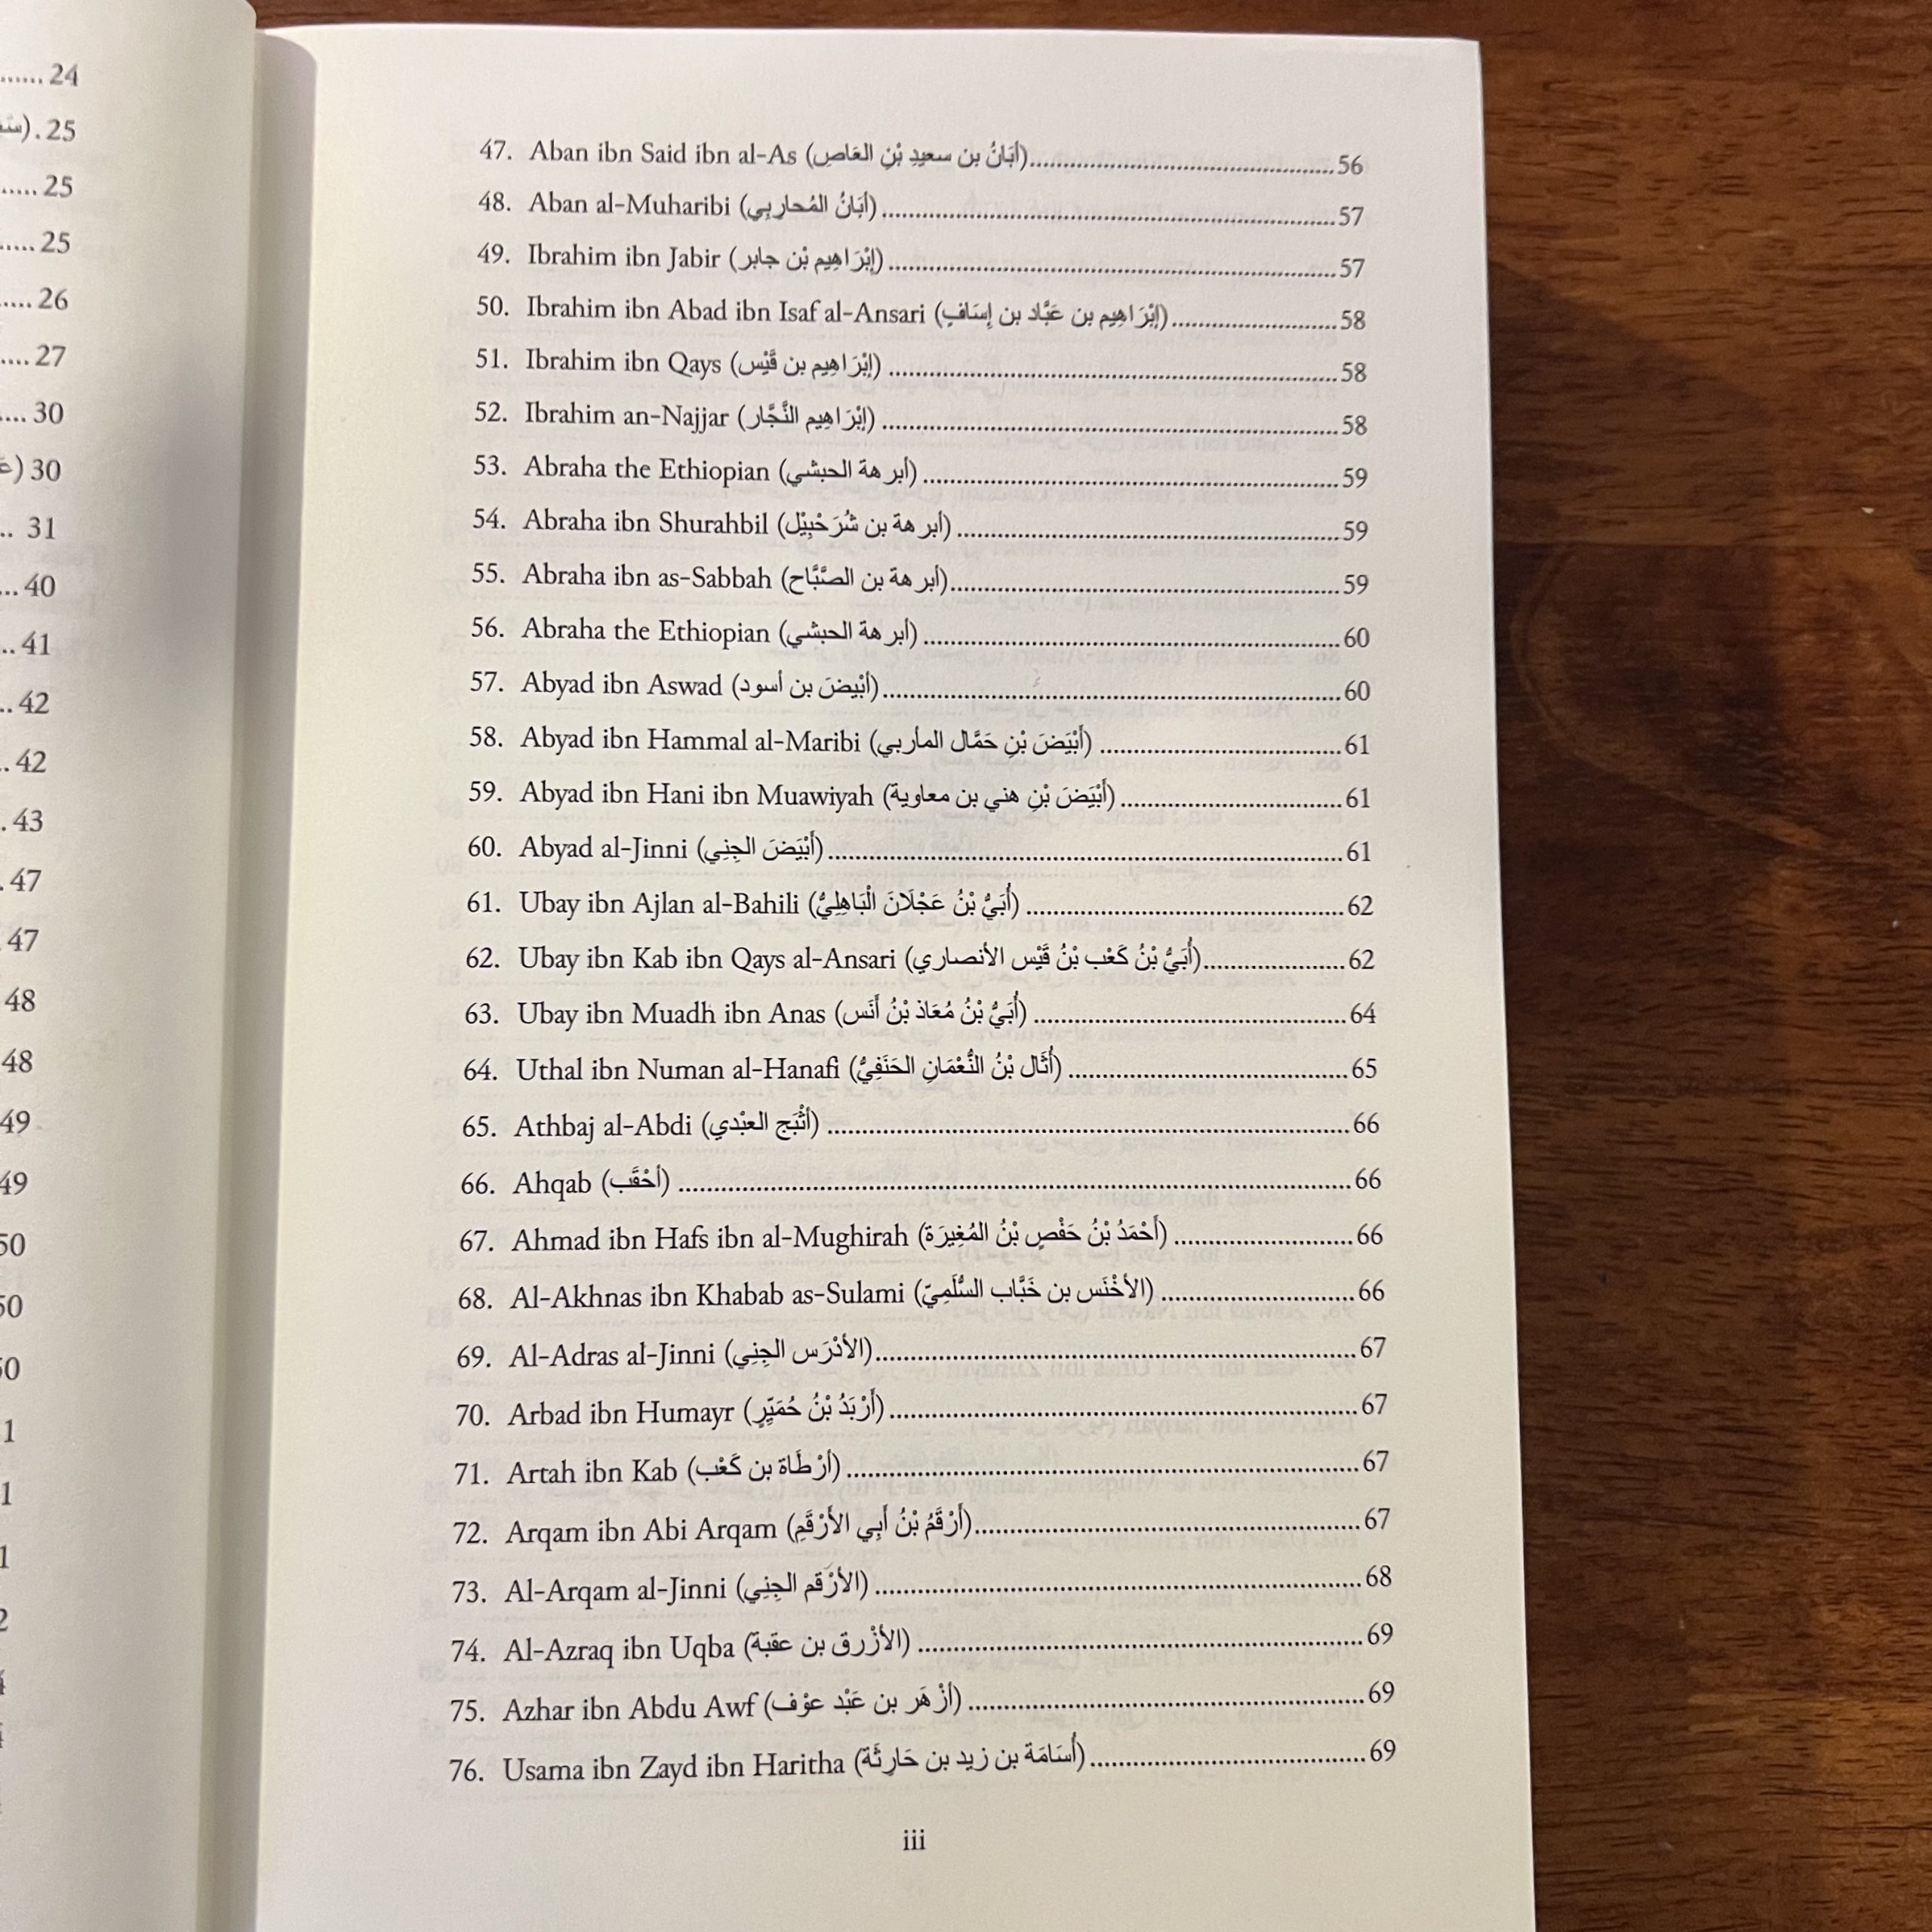 ...... 24
.25
..... 25
..... 25
..... 26
.... 27
.... 30
30
.. 31
... 40
.. 41
.. 42
. 42
. 43
. 47
47
48
48
49
49
50
50
47. Aban ibn Said ibn al-As (أبَانُ بن سعيدِ بْنِ العَاصِ)..........56
48. Aban al-Muharibi (أبَانُ المُحاربِي)..........57
49. Ibrahim ibn Jabir (إبْرَاهِيم بْن جابر)..........57
50. Ibrahim ibn Abad ibn Isaf al-Ansari (إبْرَاهِيم بن عَبَّاد بن إسَافٍ)..........58
51. Ibrahim ibn Qays (إبْرَاهِيم بن قَيْس)..........58
52. Ibrahim an-Najjar (إبْرَاهِيم النَّجَّار)..........58
53. Abraha the Ethiopian (أبرهة الحبشي)..........59
54. Abraha ibn Shurahbil (أبرهة بن شُرَحْبِيْل)..........59
55. Abraha ibn as-Sabbah (أبرهة بن الصَّبَّاح)..........59
56. Abraha the Ethiopian (أبرهة الحبشي)..........60
57. Abyad ibn Aswad (أبْيضَ بن أسود)..........60
58. Abyad ibn Hammal al-Maribi (أَبْيَضَ بْنِ حَمَّال المأربي)..........61
59. Abyad ibn Hani ibn Muawiyah (أَبْيَضَ بْنِ هني بن معاوية)..........61
60. Abyad al-Jinni (أَبْيَضَ الجِنِي)..........61
61. Ubay ibn Ajlan al-Bahili (أُبَيُّ بْنُ عَجْلَانَ الْبَاهِلِيُّ)..........62
62. Ubay ibn Kab ibn Qays al-Ansari (أُبَيُّ بْنُ كَعْب بْنُ قَيْس الأنصاري)..........62
63. Ubay ibn Muadh ibn Anas (أُبَيُّ بْنُ مُعَاذ بْنُ أَنَس)..........64
64. Uthal ibn Numan al-Hanafi (أُثَال بْنُ النُّعْمَانِ الحَنَفِيُّ)..........65
65. Athbaj al-Abdi (أثْبَج العبْدي)..........66
66. Ahqab (أحْقَب)..........66
67. Ahmad ibn Hafs ibn al-Mughirah (أَحْمَدُ بْنُ حَفْصٍ بْنُ المُغِيرَة)..........66
68. Al-Akhnas ibn Khabab as-Sulami (الأخْنَس بن خَبَّاب السُّلَمِيّ)..........66
69. Al-Adras al-Jinni (الأدْرَس الجِنِي)..........67
70. Arbad ibn Humayr (أَرْبَدُ بْنُ حُمَيِّرٍ)..........67
71. Artah ibn Kab (أرْطَاة بن كَعْب)..........67
72. Arqam ibn Abi Arqam (أَرْقَمُ بْنُ أَبِي الأَرْقَمِ)..........67
73. Al-Arqam al-Jinni (الأرْقم الجِنِي)..........68
74. Al-Azraq ibn Uqba (الأزْرق بن عقبة)..........69
75. Azhar ibn Abdu Awf (أزْهَر بن عَبْد عوْف)..........69
76. Usama ibn Zayd ibn Haritha (أُسَامَة بن زيد بن حَارِثَة)..........69
iii